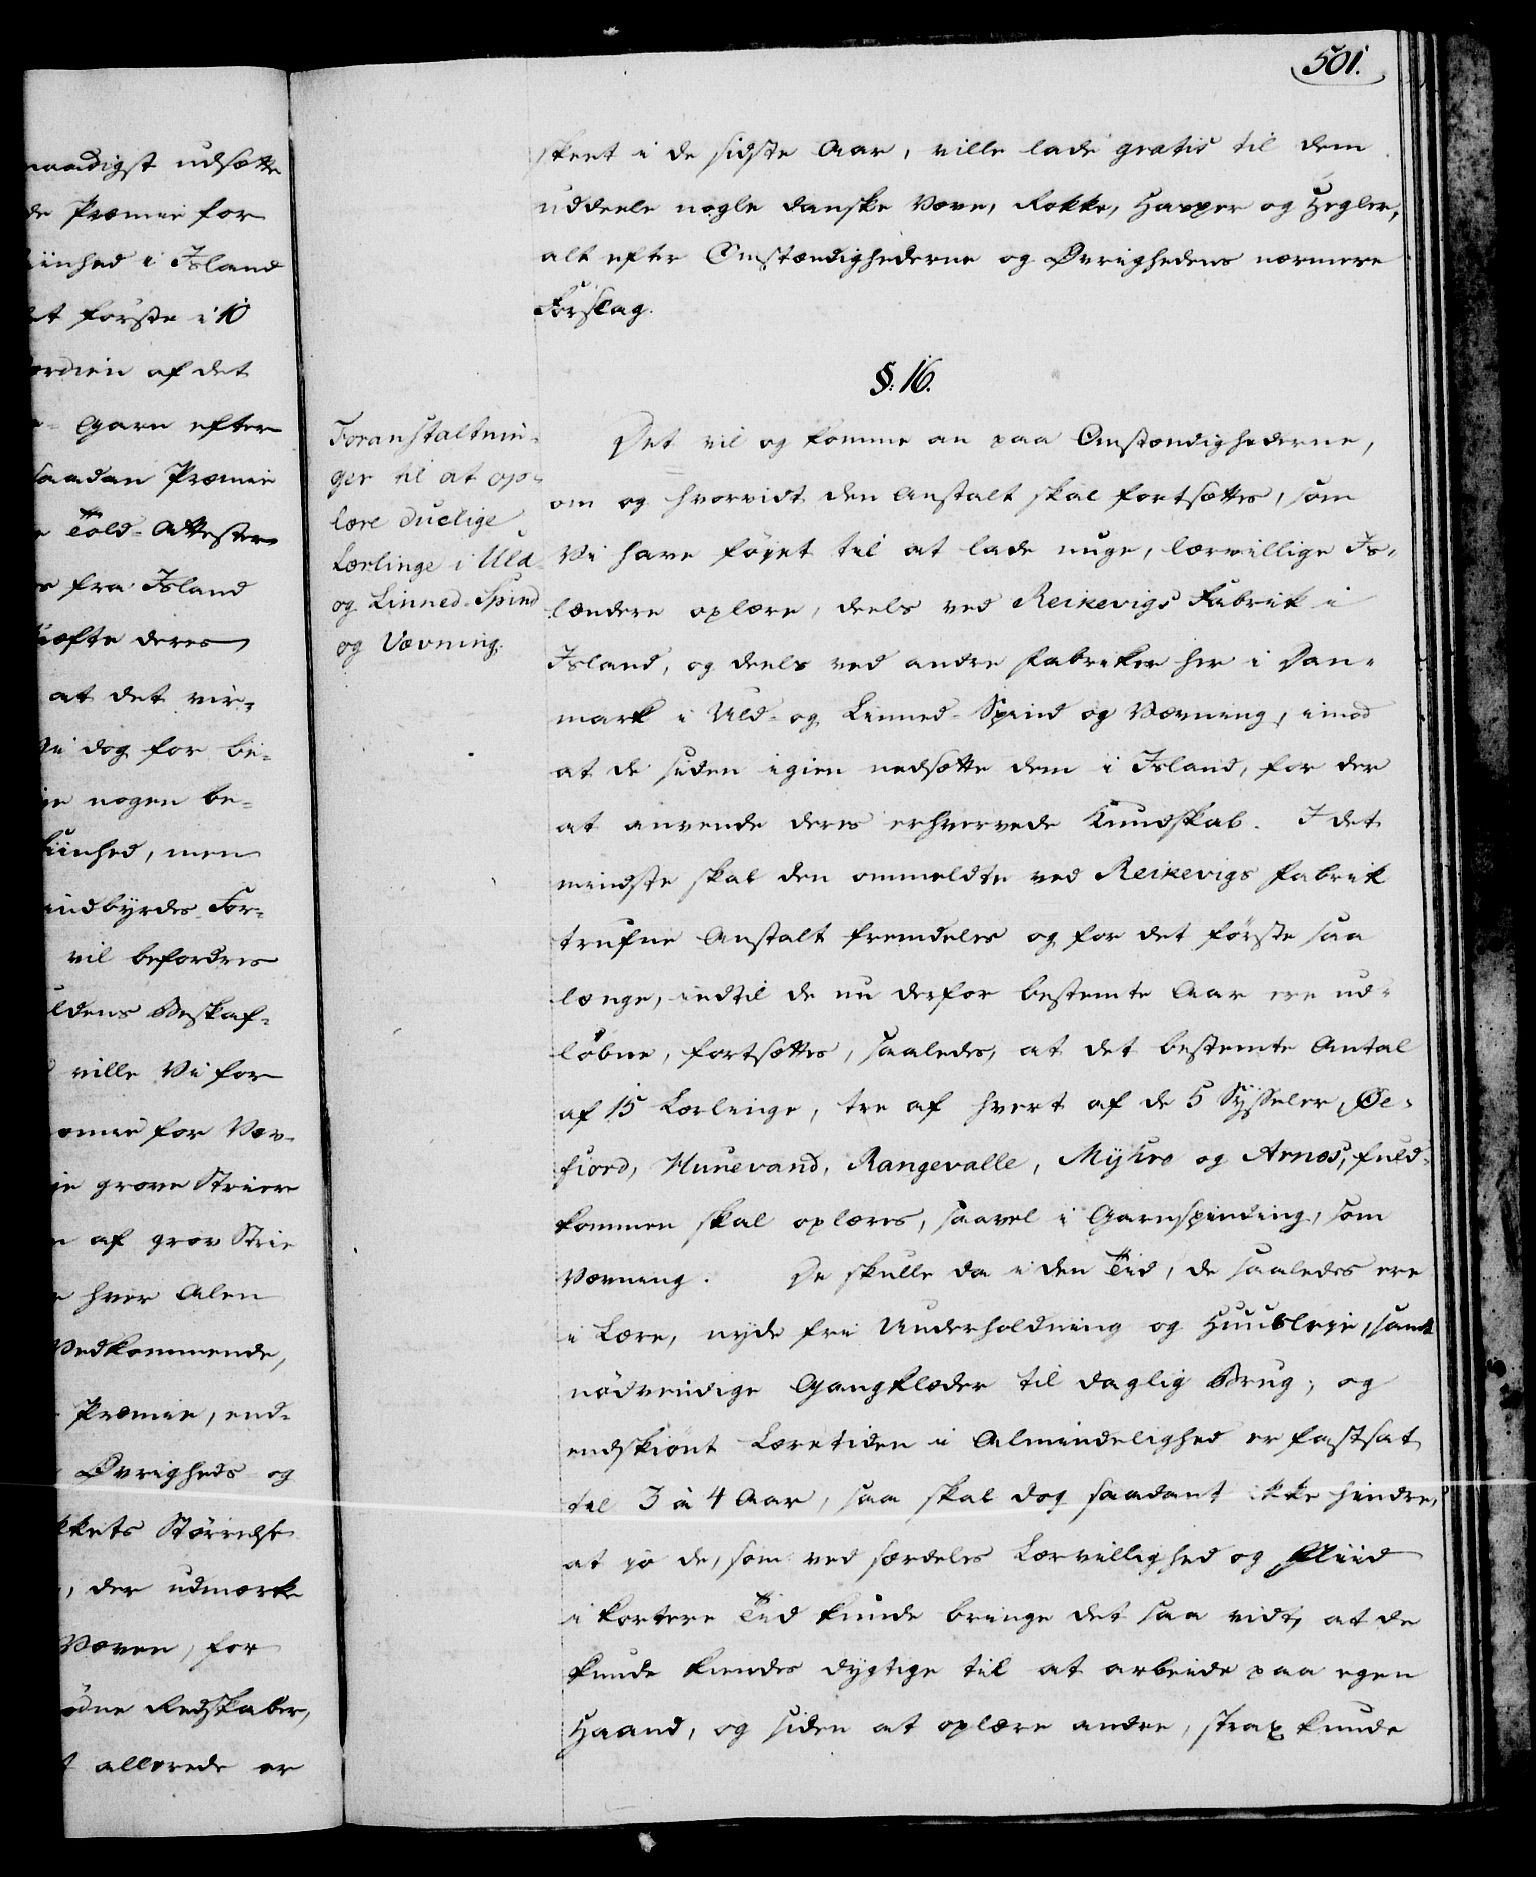 naadigst udsætte
de Præmie for
iinhed i Island
et förste i 10
ærdien af det
Garn efter
saadan Præmie
Told-Attester
fra Island
hæfte deres
at det vir-
Vi dog for be-
nogen be-
iinhed, men
indbyrdes For-
vil befordres
ldens Beskaf-
ville Vi for
æmie for Væv-
grove Strier
af grov Strie
hver Alen
Vedkommende,
Præmie, end-
Øvrigheds- og
kkets Störrelse
, der udmærke
Væven, for
ödne Redskaber,
t allerede er
501.
skeet i de sidste Aar, ville lade gratis til dem
uddeele nogle danske Væve, Rokke, Hasper og Hegler,
alt efter Omstændighederne og Øvrighedens nærmere
Forslag.
§. 16.
Foranstaltnin-
ger til at op-
lære duelige
Lærlinge i Uld-
og Linned-Spind
og Vævning.
Det vil og komme an paa Omstændighederne,
om og hvorvidt den Anstalt skal fortsættes, som
Vi have föyet til at lade unge, lærvillige Is-
lændere oplære, deels ved Reikevigs Fabrik i
Island, og deels ved andre Fabriker her i Dan-
mark i Uld- og Linned-Spind og Vævning, imod
at de siden igien nedsætte dem i Island, for der
at anvende deres erhvervede Kundskab. I det
mindste skal den ommeldte ved Reikevigs Fabrik
trufne Anstalt fremdeles og for det förste saa
længe, indtil de nu derfor bestemte Aar ere ud-
löbne, fortsættes, saaledes, at det bestemte Antal
af 15 Lærlinge, tre af hvert af de 5 Sysseler, Øe-
fiord, Hunevand, Rangevalle, Myhre og Arnes, fuld-
kommen skal oplæres, saavel i Garnspinding, som
Vævning. De skulle da i den Tid, de saaledes ere
i Lære, nyde frie Underholdning og Huusleye, samt
nödvendige Gangklæder til daglig Brug; og
endskiönt Læretiden i Almindelighed er fastsat
til 3 à 4 Aar, saa skal dog saadant ikke hindre,
at jo de, som ved særdeles Lærvillighed og Fliid
i kortere Tid kunde bringe det saa vidt, at de
kunde kiendes dygtige til at arbeide paa egen
Haand, og siden at oplære andre, strax kunde